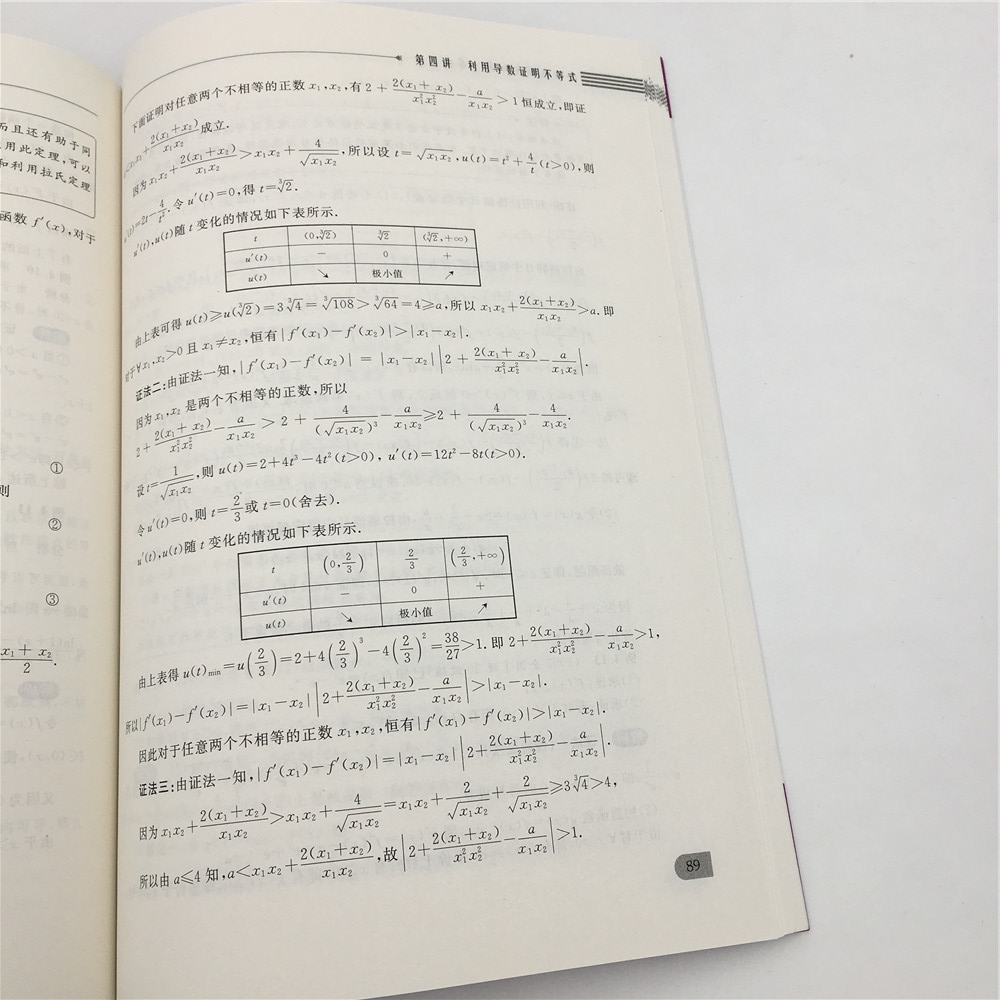 而且还有助于同
用此定理,可以
和利用拉氏定理
函数 f′(x),对于
①
则
②
③
(x₁+x₂)/2.
第四讲 利用导数证明不等式
下面证明对任意两个不相等的正数 x₁,x₂,有 2+2(x₁+x₂)/(x₁²x₂²)-a/(x₁x₂)>1 恒成立,即证
x₁x₂+2(x₁+x₂)/(x₁x₂)成立.
因为 x₁x₂+2(x₁+x₂)/(x₁x₂)>x₁x₂+4/√(x₁x₂),所以设 t=√(x₁x₂),u(t)=t²+4/t(t>0),则
u′(t)=2t-4/t².令 u′(t)=0,得 t=∛2.
u′(t),u(t)随 t 变化的情况如下表所示.
t (0,∛2) ∛2 (∛2,+∞)
u′(t) - 0 +
u(t) ↘ 极小值 ↗
由上表可得 u(t)≥u(∛2)=3∛4=∛108>∛64=4≥a,所以 x₁x₂+2(x₁+x₂)/(x₁x₂)>a.即
对于∀x₁,x₂>0 且 x₁≠x₂,恒有|f′(x₁)-f′(x₂)|>|x₁-x₂|.
证法二:由证法一知,|f′(x₁)-f′(x₂)|=|x₁-x₂||2+2(x₁+x₂)/(x₁²x₂²)-a/(x₁x₂)|.
因为 x₁,x₂ 是两个不相等的正数,所以
2+2(x₁+x₂)/(x₁²x₂²)-a/(x₁x₂)>2+4/(√(x₁x₂))³-a/(x₁x₂)≥2+4/(√(x₁x₂))³-4/(x₁x₂).
设 t=1/√(x₁x₂),则 u(t)=2+4t³-4t²(t>0),u′(t)=12t²-8t(t>0).
令 u′(t)=0,则 t=2/3或 t=0(舍去).
u′(t),u(t)随 t 变化的情况如下表所示.
t (0,2/3) 2/3 (2/3,+∞)
u′(t) - 0 +
u(t) ↘ 极小值 ↗
由上表得 u(t)min=u(2/3)=2+4(2/3)³-4(2/3)²=38/27>1.即 2+2(x₁+x₂)/(x₁²x₂²)-a/(x₁x₂)>1,
所以|f′(x₁)-f′(x₂)|=|x₁-x₂||2+2(x₁+x₂)/(x₁²x₂²)-a/(x₁x₂)|>|x₁-x₂|.
因此对于任意两个不相等的正数 x₁,x₂,恒有|f′(x₁)-f′(x₂)|>|x₁-x₂|.
证法三:由证法一知,|f′(x₁)-f′(x₂)|=|x₁-x₂||2+2(x₁+x₂)/(x₁²x₂²)-a/(x₁x₂)|.
因为 x₁x₂+2(x₁+x₂)/(x₁x₂)>x₁x₂+4/√(x₁x₂)=x₁x₂+2/√(x₁x₂)+2/√(x₁x₂)≥3∛4>4,
所以由 a≤4 知,a<x₁x₂+2(x₁+x₂)/(x₁x₂),故|2+2(x₁+x₂)/(x₁²x₂²)-a/(x₁x₂)|>1.
89